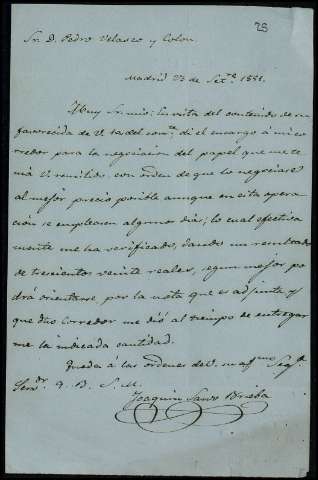 28
Sr. D. Pedro Velasco y Colon.
Madrid 23 de Setᵉ. 1851.
Muy Sr. mio: En vista del contenido de su
favorecida de V. 1a. del corrᵗᵉ. di el encargo á mi co
rredor para la negociacion del papel que me te
nia V. remitido, con orden de que lo negociase
al mejor precio posible aunque en esta opera
cion se empleasen algunos dias; lo cual efectiva
mente me ha verificado, dando un resultado
de trescientos veinte reales, segun mejor po
drá orientarse por la nota que es adjunta y
que dho. Corredor me dió al tiempo de entregar
me la indicada cantidad.
Queda á las ordenes de V. su affᵐᵒ Segᵒ.
Servᵒʳ. Q. B. S. M.
Joaquin Sanz Brieba